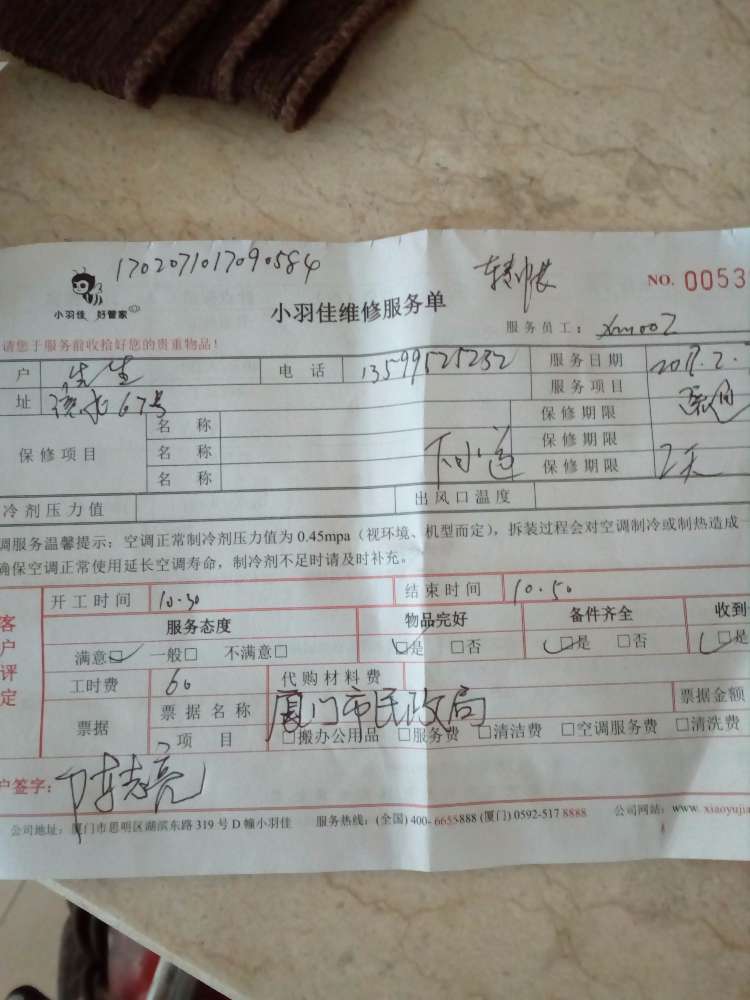 1702071017090584
小羽佳 好管家
小羽佳维修服务单
NO. 0053
服务员工: xm002
请您于服务前收拾好您的贵重物品!
户 先生 电话 13599525232 服务日期
服务项目
址 67号 保修期限
保修项目 名称
名称 下水道 保修期限
名称 保修期限 2天
冷剂压力值 出风口温度
调服务温馨提示: 空调正常制冷剂压力值为 0.45mpa (视环境、机型而定), 拆装过程会对空调制冷或制热造成
确保空调正常使用延长空调寿命, 制冷剂不足时请及时补充。
客户评定
开工时间 10.30 结束时间 10.50
服务态度 物品完好 备件齐全 收到
满意☑ 一般□ 不满意□ ☑是 □否 ☑是 □否 ☑是
工时费 60 代购材料费
票据 票据名称 厦门市民政局 票据金额
项目 □搬办公用品 □服务费 □清洁费 □空调服务费 □清洗费
户签字: 陈志亮
公司地址: 厦门市思明区湖滨东路 319 号 D 幢小羽佳 服务热线: (全国) 400-6655888 (厦门) 0592-517 8888 公司网站: www. xiaoyujia